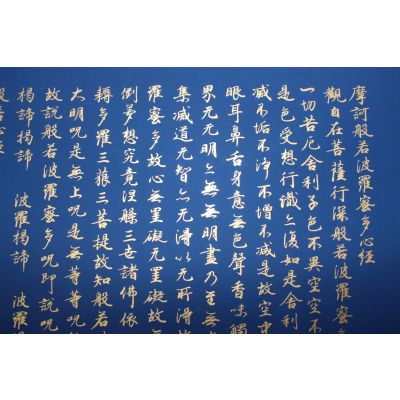 摩訶般若波羅蜜多心経
觀自在菩薩行深般若波羅蜜多
一切苦厄舍利子色不異空空不
是色受想行識亦復如是舍利
减不垢不淨不增不减是故空中
眼耳鼻舌身意无色聲香味觸
界无无明亦無無明盡乃至無
集减道无智亦无得以无所得故
羅蜜多故心無罣礙无罣礙故
倒夢想究竟涅槃三世諸佛依
耨多羅三藐三菩提故知般若
大明呪是無上呪是無等等呪
故說般若波羅蜜多呪即說呪
揭諦揭諦 波羅揭諦 波羅
般若心経